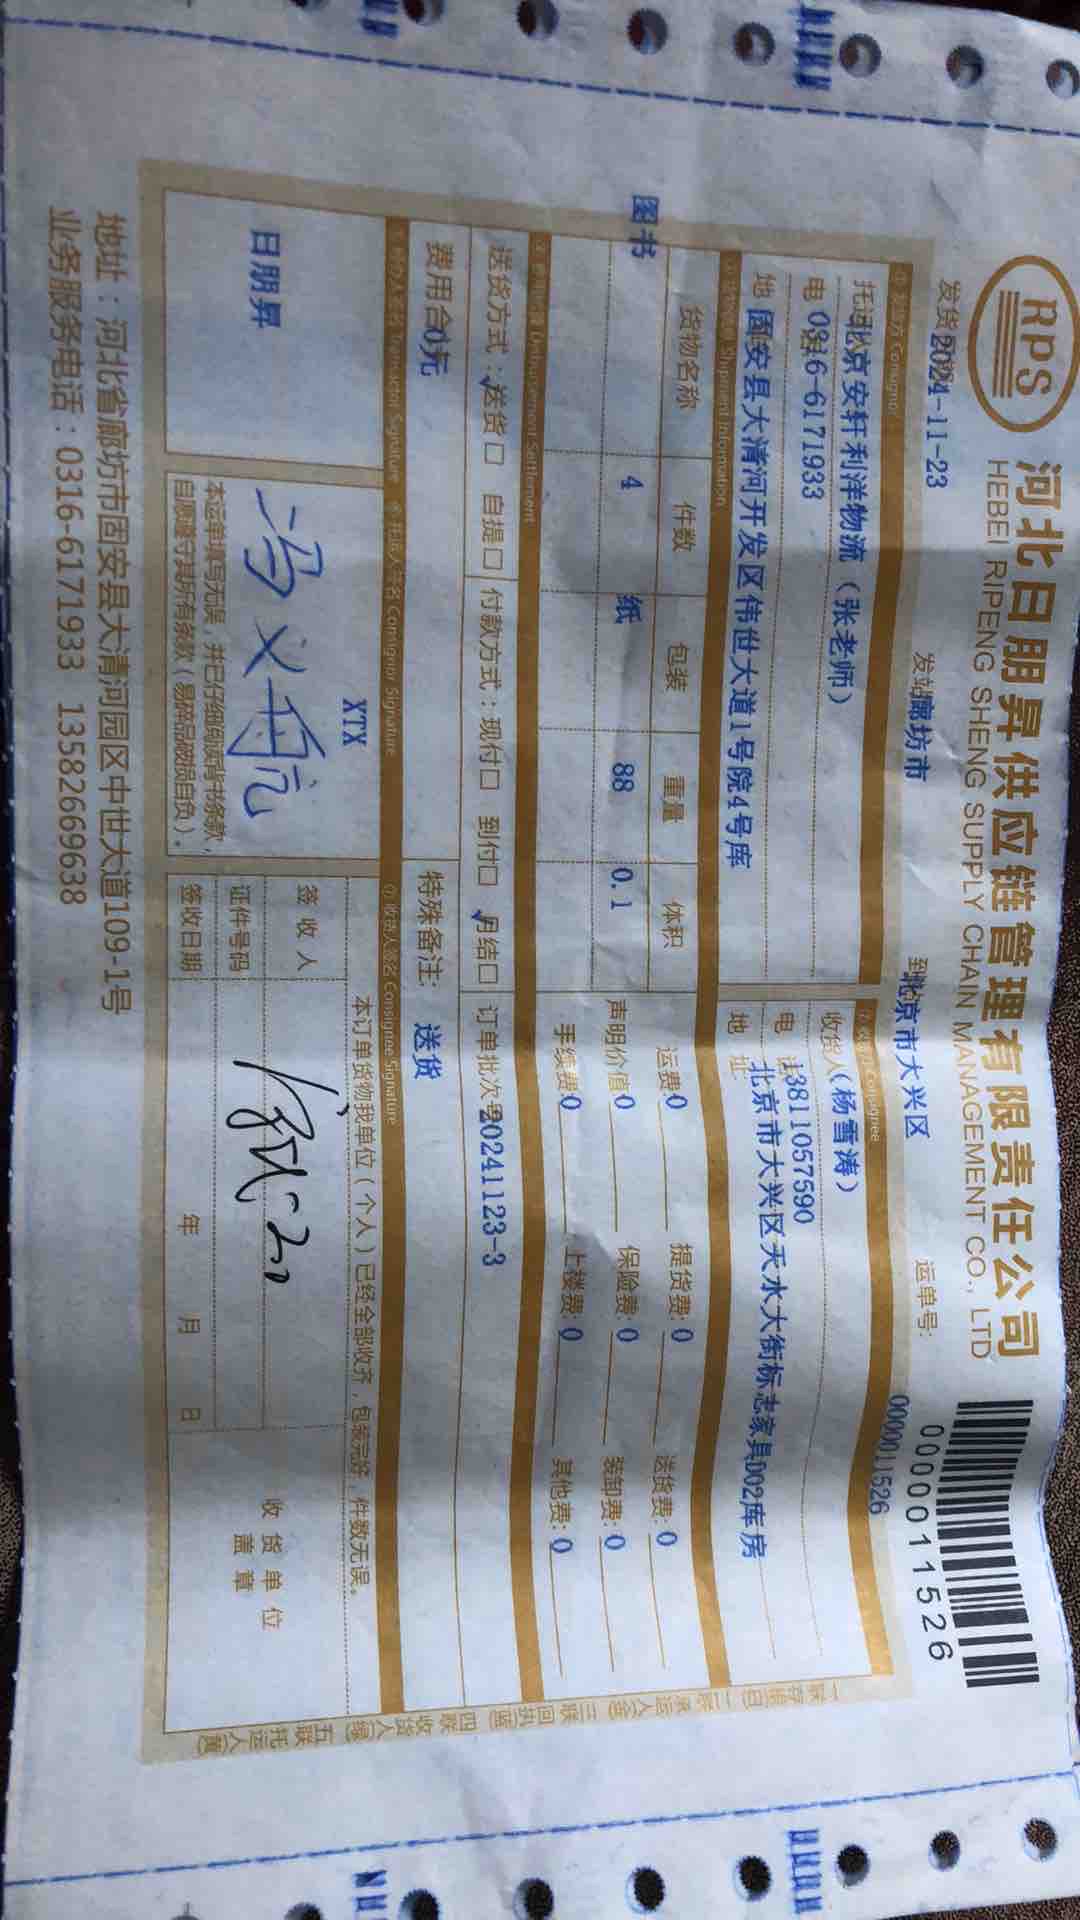 RPS
河北日朋昇供应链管理有限责任公司
HEBEI RIPENG SHENG SUPPLY CHAIN MANAGEMENT CO., LTD
0000011526
发货 2024-11-23 发站 廊坊市 到 北京市大兴区 运单号: 0000011526
Consignor
北京安轩利洋物流（张老师）
电 0316-6171933
地 固安县大清河开发区伟世大道1号院4号库
Consignee
收货人 (杨雪涛)
电 13811057590
地址 北京市大兴区天水大街标志家具D02库房
Shipment Information
货物名称 件数 包装 重量 体积
图书 4 纸 88 0.1
运费:0 提货费:0 送货费:0
声明价值:0 保险费:0 装卸费:0
手续费:0 上楼费:0 其他费:0
Disbursement Settlement
送货方式:✓送货□ 自提□ 付款方式:现付□ 到付□ ✓月结□ 订单批次号20241123-3
费用合0元 特殊备注: 送货
Transactor Signature
Consignor Signature
收货人签名 Consignee Signature
日朋昇
XTX
本运单填写无误,并已仔细阅读背书条款,
自愿遵守其所有条款(易碎品破损自负)。
本订单货物我单位(个人)已经全部收齐,包装完好,件数无误。
签收人
证件号码
签收日期 年 月 日
收货单位
盖章
地址:河北省廊坊市固安县大清河园区中世大道109-1号
业务服务电话:0316-6171933 13582669638